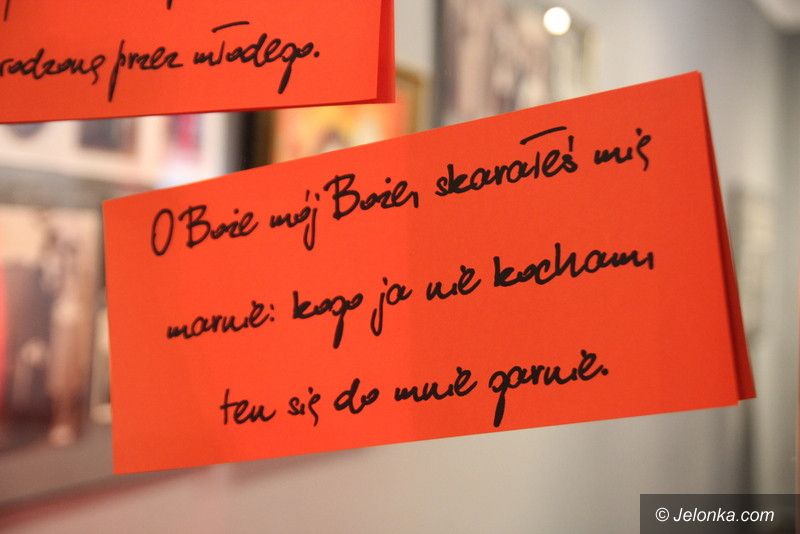 przez młodego.
O Boże mój Boże, skarałeś mię
marnie: kogo ja nie kocham,
ten się do mnie garnie.
© Jelonka.com